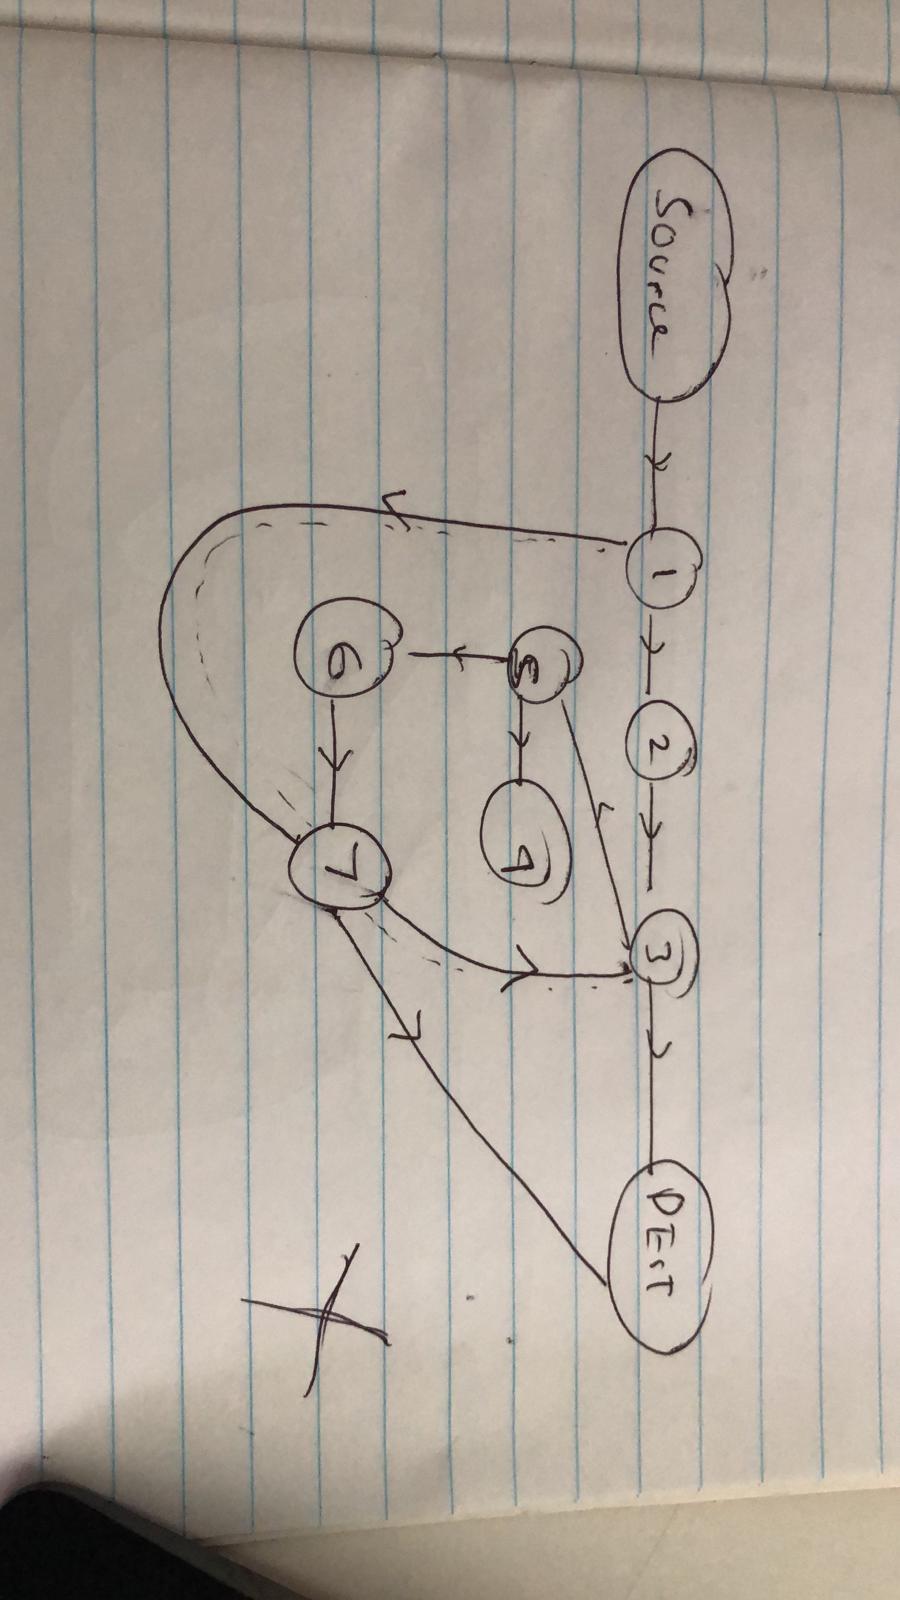 Source 1 2 3 DEST
5 9
6 7